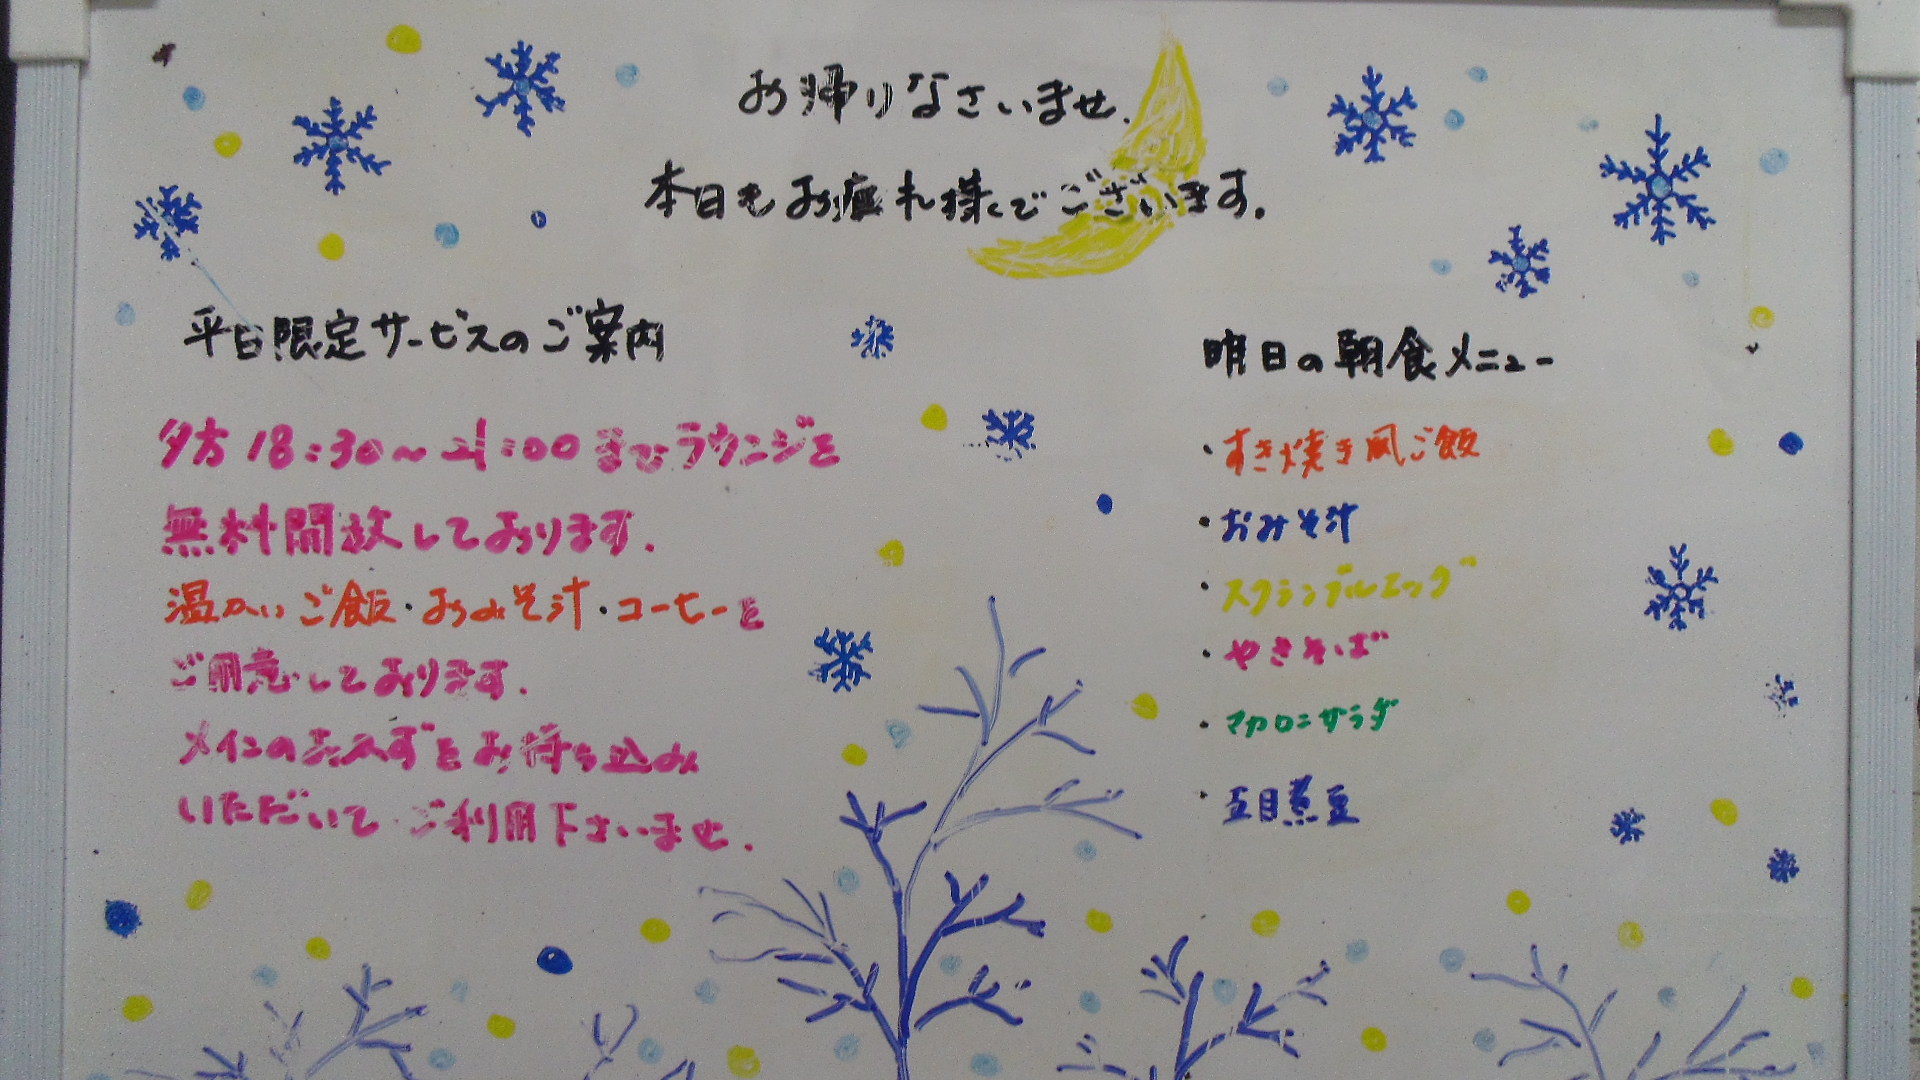 お帰りなさいませ.
本日もお疲れ様でございます.
平日限定サービスのご案内
夕方18:30～21:00までラウンジを
無料開放しております.
温かいご飯・おみそ汁・コーヒーを
ご用意しております.
メインのおかずをお持ち込み
いただいてご利用下さいませ.
明日の朝食メニュー
・すき焼き風ご飯
・おみそ汁
・スクランブルエッグ
・やきそば
・マカロニサラダ
・五目煮豆